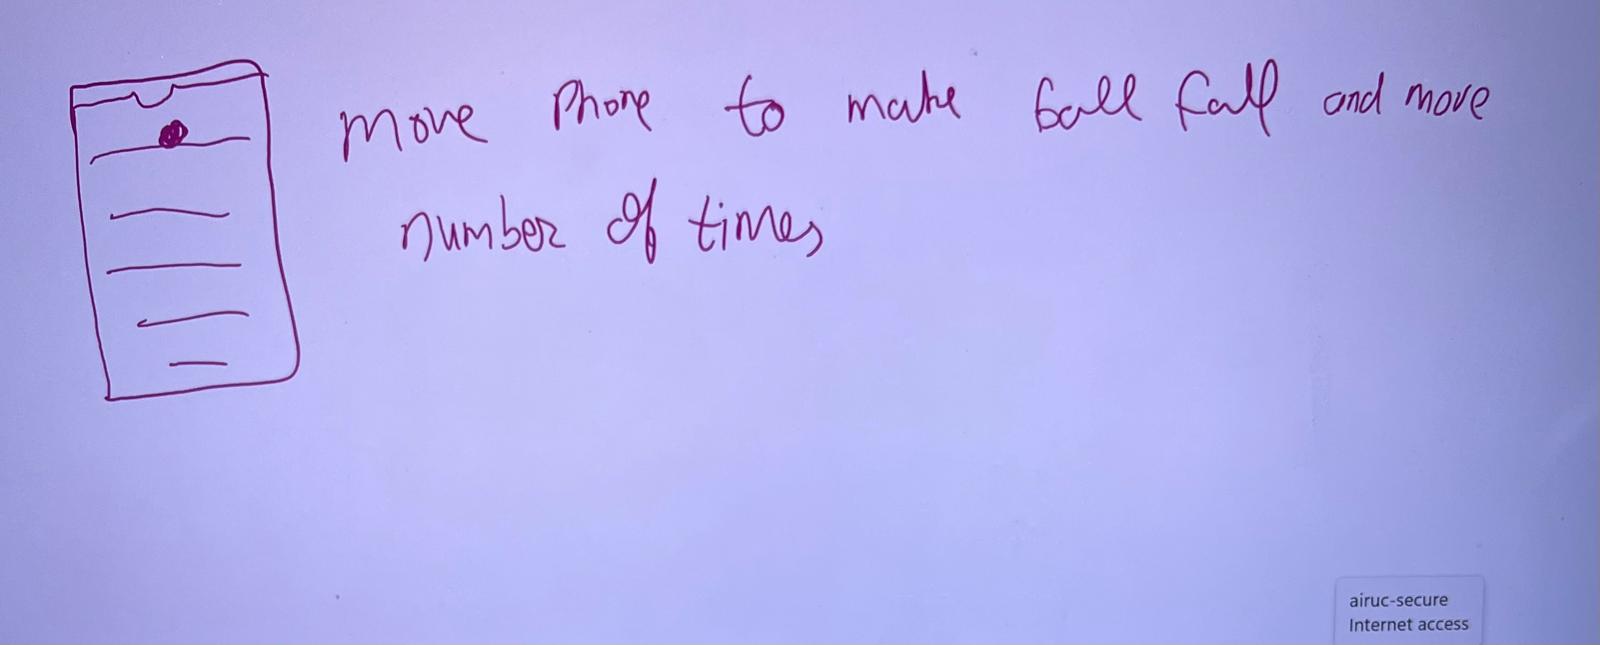 move Phone to make ball fall and move
number of times
airuc-secure
Internet access